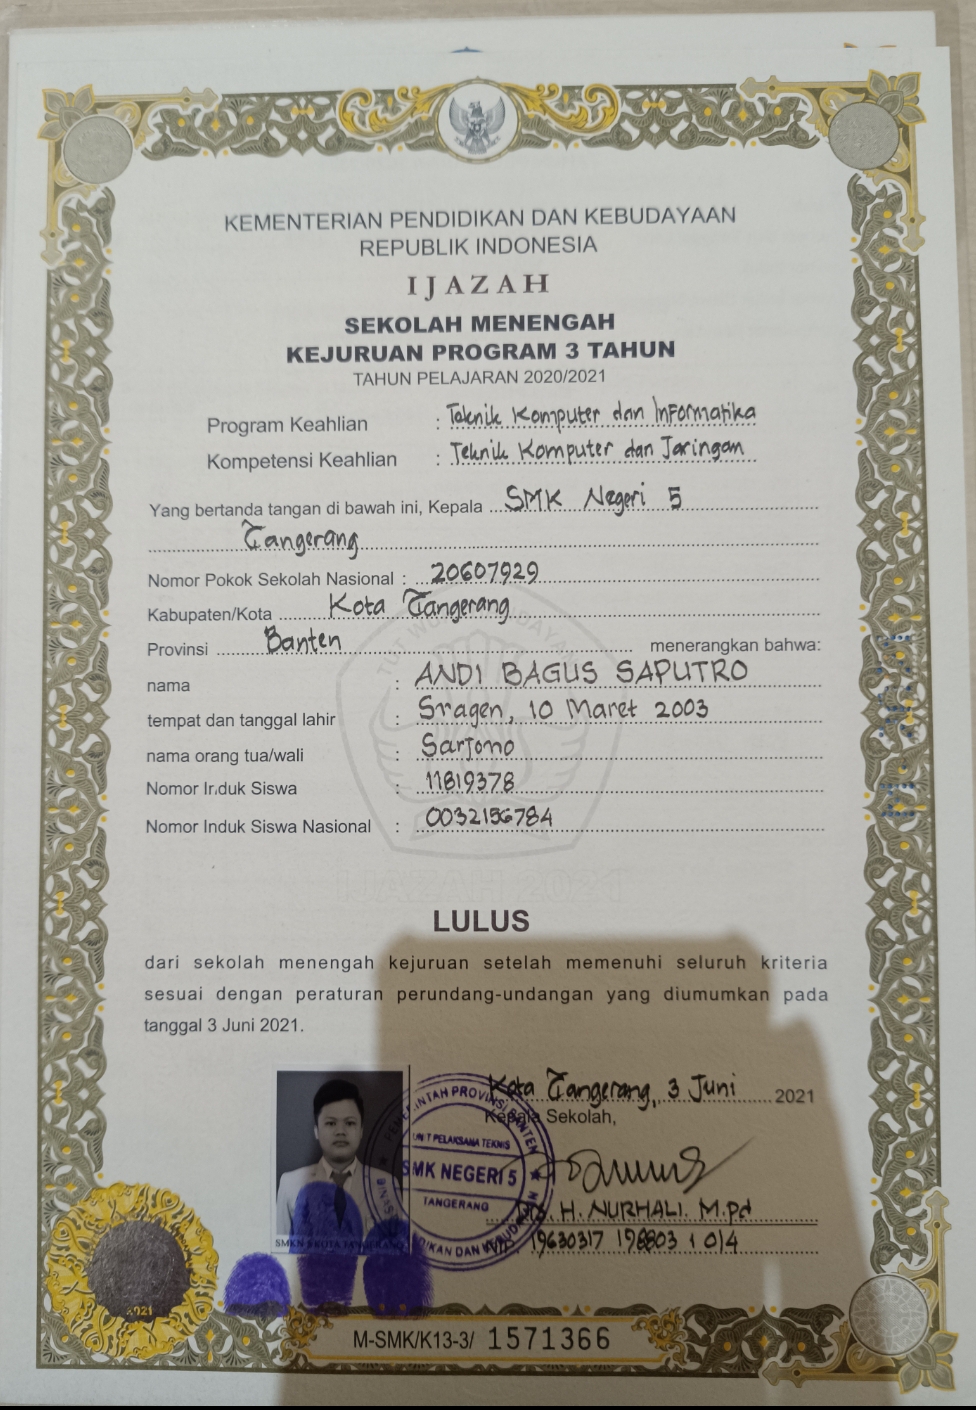 KEMENTERIAN PENDIDIKAN DAN KEBUDAYAAN
REPUBLIK INDONESIA
IJAZAH
SEKOLAH MENENGAH
KEJURUAN PROGRAM 3 TAHUN
TAHUN PELAJARAN 2020/2021
Program Keahlian : Teknik Komputer dan Informatika
Kompetensi Keahlian : Teknik Komputer dan Jaringan
Yang bertanda tangan di bawah ini, Kepala SMK Negeri 5
Tangerang
Nomor Pokok Sekolah Nasional : 20607929
Kabupaten/Kota Kota Tangerang
Provinsi Banten menerangkan bahwa:
nama : ANDI BAGUS SAPUTRO
tempat dan tanggal lahir : Sragen, 10 Maret 2003
nama orang tua/wali : Sarjono
Nomor Induk Siswa : 11819378
Nomor Induk Siswa Nasional : 0032156784
IJAZAH 2021
LULUS
dari sekolah menengah kejuruan setelah memenuhi seluruh kriteria
sesuai dengan peraturan perundang-undangan yang diumumkan pada
tanggal 3 Juni 2021.
Kota Tangerang, 3 Juni 2021
Kepala Sekolah,
PEMERINTAH PROVINSI BANTEN
UNIT PELAKSANA TEKNIS
SMK NEGERI 5
TANGERANG
DINAS PENDIDIKAN DAN KEBUDAYAAN
Drs. H. NURHALI. M.Pd
NIP. 19630317 198803 1 014
SMKN 5 KOTA TANGERANG
2021
M-SMK/K13-3/ 1571366